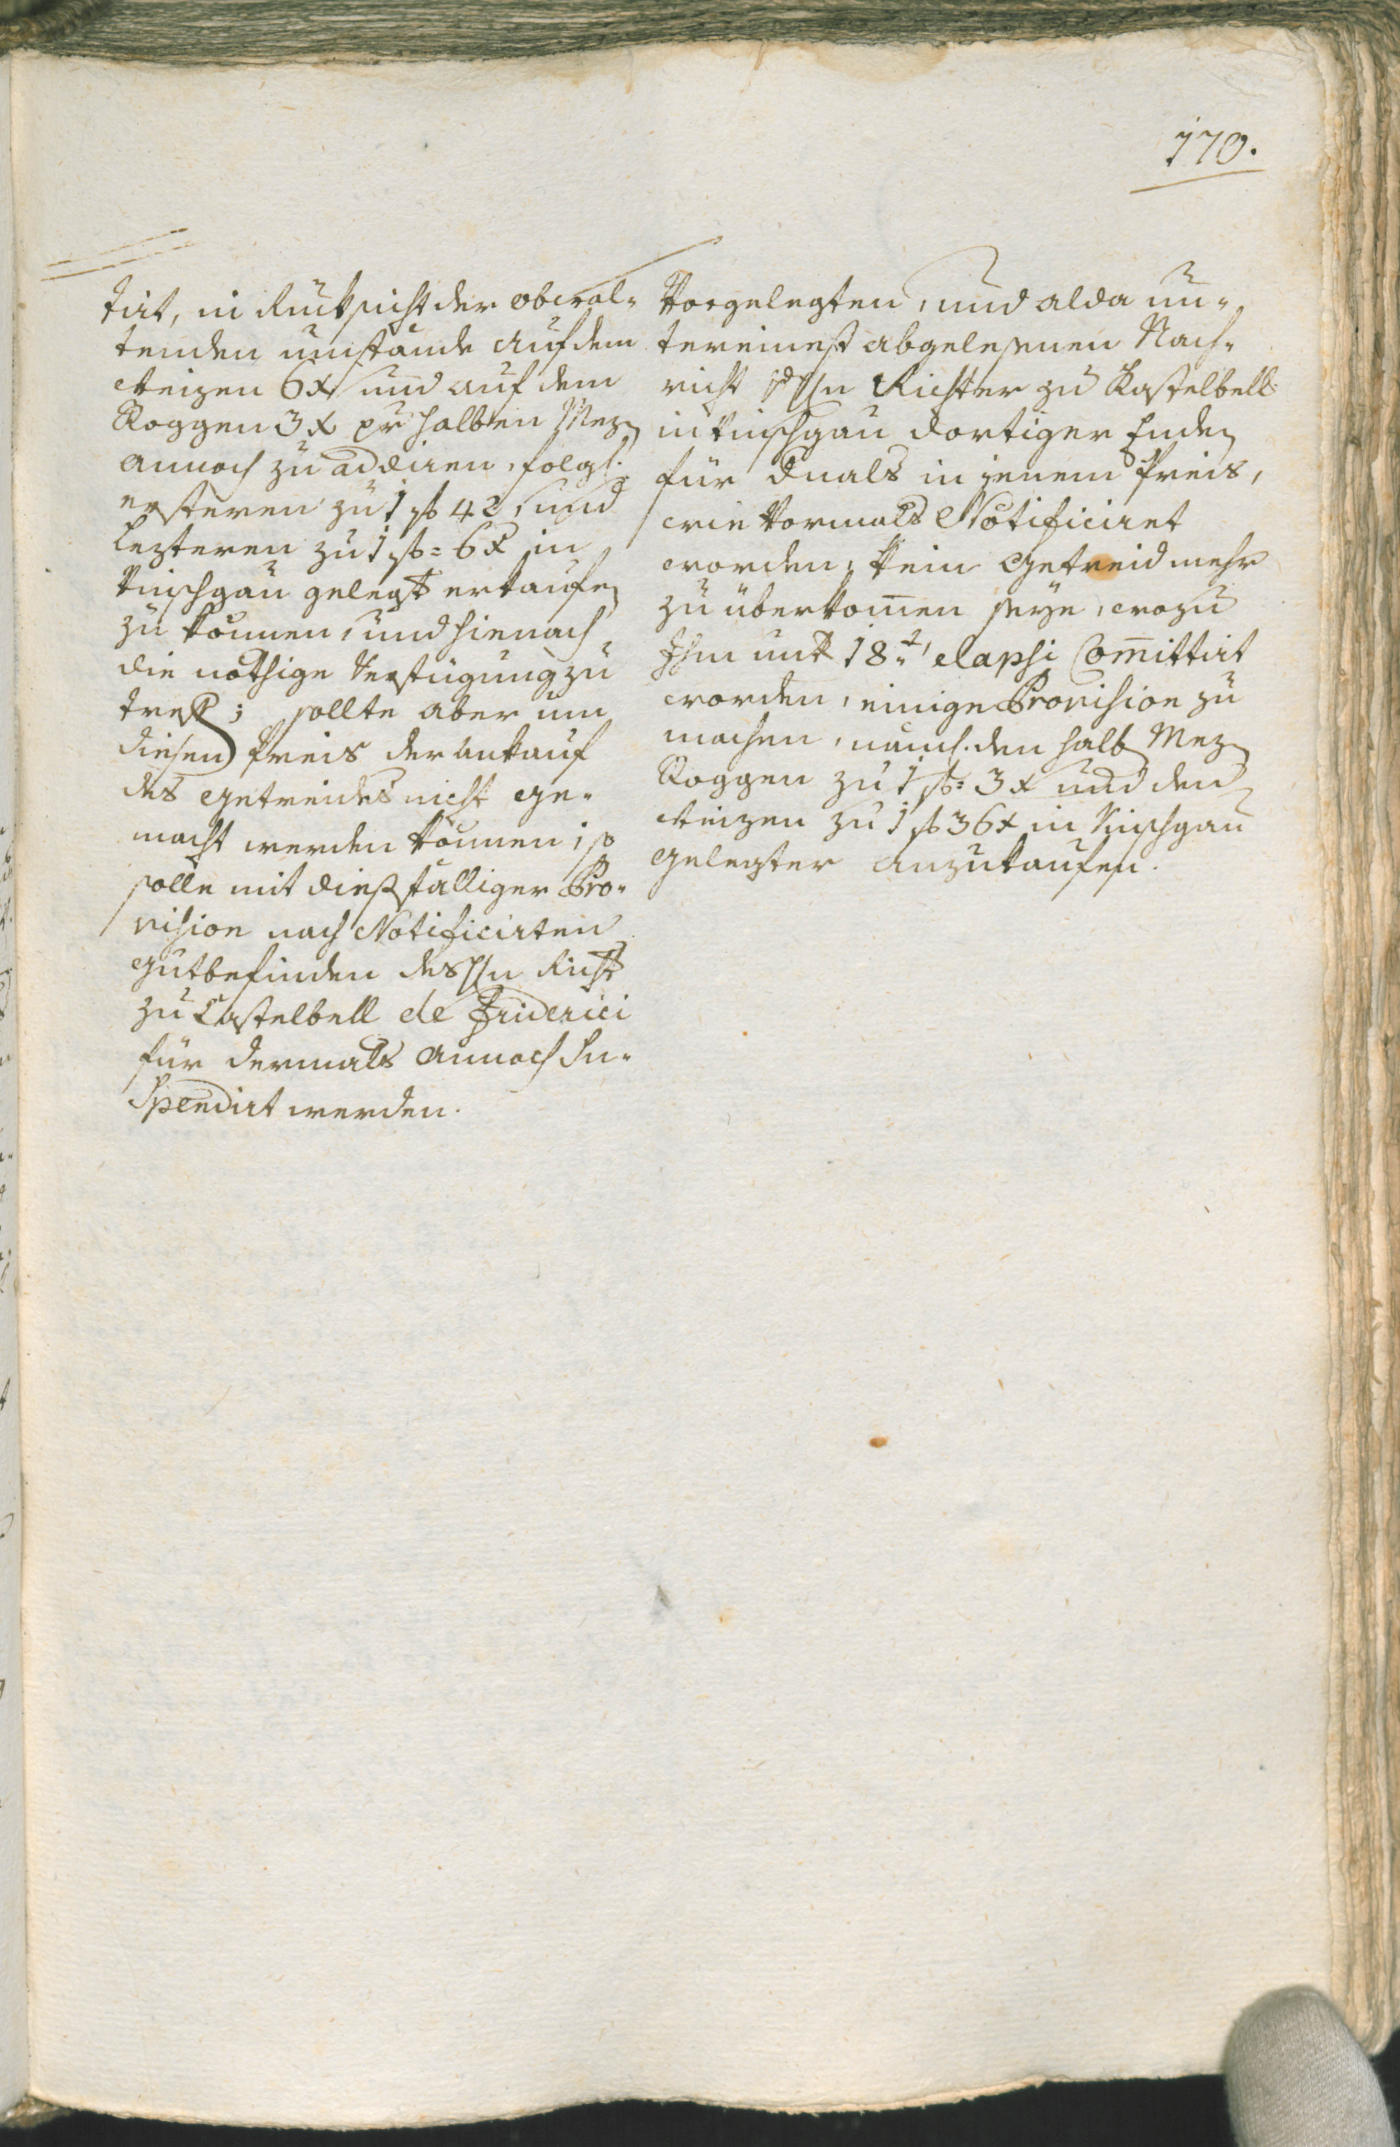 170.
tirt, in Rücksicht der obwal-
tenden umstände auf dem
Weizen 6x und auf dem
Roggen 3x pr halben Mez
annoch zu addiren, folgl.
ersteren zu 1 f 42, und
lezteren zu 1 f= 6x in
Vinschgau gelegt erkaufen
zu können, und hienach
die nöthige Verfügung zu
treffen; sollte aber um
diesen Preis der Ankauf
des Getreides nicht ge-
macht werden können; so
solle mit dießfälliger Pro-
vision nach Notificirten
Gutbefinden des Hn Richter
zu Castelbell de Friderici
für dermals annoch Su-
spendirt werden.
Vorgelegten, und alda un-
tereinest abgelesenen Nach-
richt Hn Richter zu Kastelbell
in Vinschgau dortiger Enden
für dmals in jenem Preis,
wie Vormals Notificiret
worden, kein Getreid mehr
zu überkomen seye, wozu
Ihm untr 18t elapsi Comittirt
worden, einige Provision zu
machen, nämlich den halb Mez
Roggen zu 1 f= 3x und den
Weizen zu 1 f 36x in Vinschgau
gelegter anzukaufen.